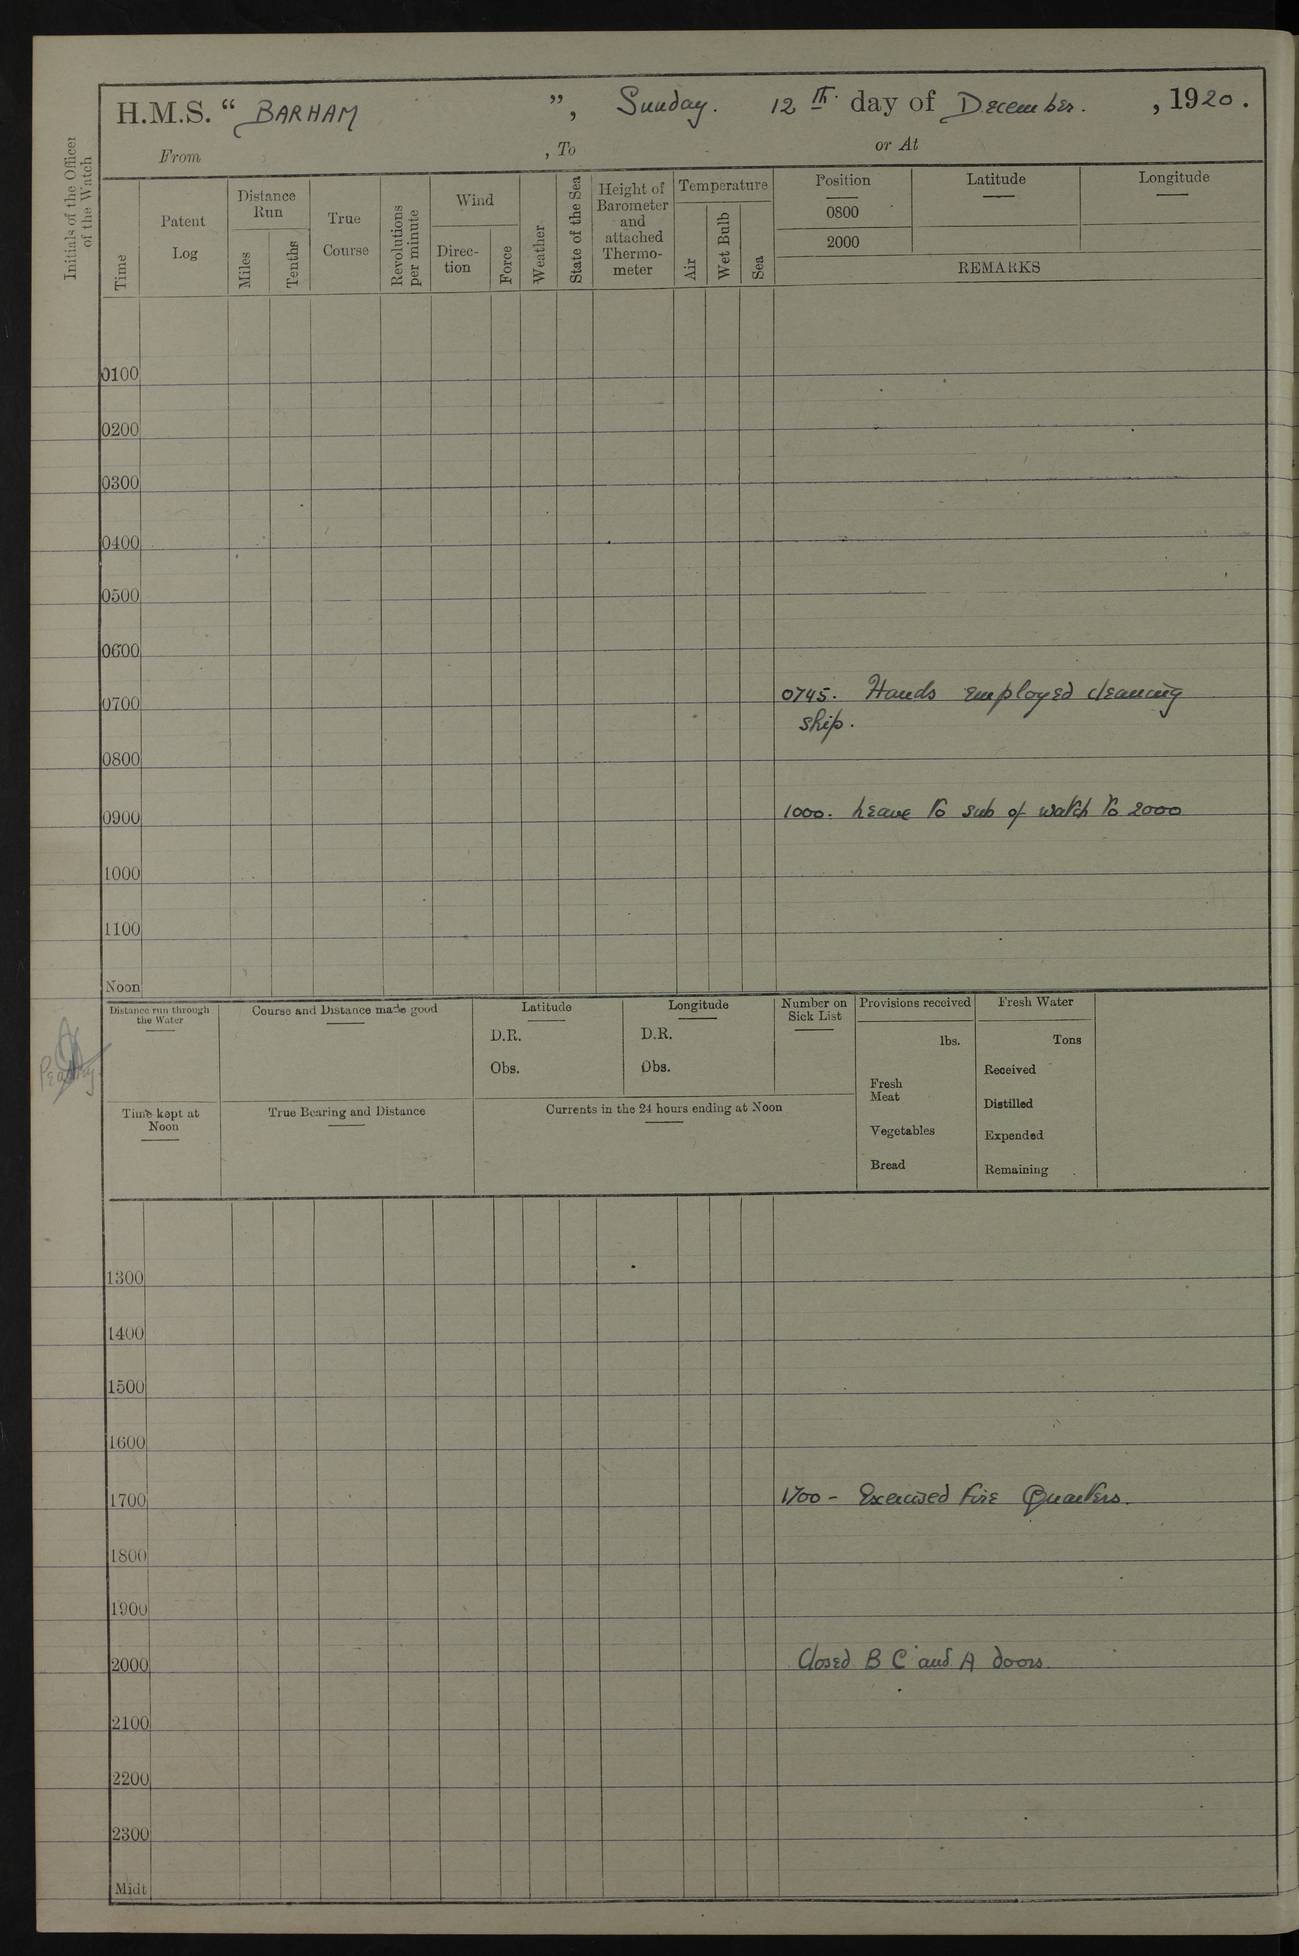 H.M.S. “ BARHAM ”, Sunday. 12th. day of December. , 1920.
From , To or At
Initials of the Officer of the Watch
Time
Patent Log
Distance Run
Miles
Tenths
True Course
Revolutions per minute
Wind
Direc-
tion
Force
Weather
State of the Sea
Height of
Barometer
and
attached
Thermo-
meter
Temperature
Air
Wet Bulb
Sea
Position Latitude Longitude
0800
2000
REMARKS
0100
0200
0300
0400
0500
0600
0745. Hands employed cleaning
0700
ship.
0800
1000. Leave to sub of watch to 2000
0900
1000
1100
Noon
Distance run through
the Water
Course and Distance made good
Latitude
D.R.
Obs.
Longitude
D.R.
Obs.
Number on
Sick List
Provisions received
lbs.
Fresh
Meat
Vegetables
Bread
Fresh Water
Tons
Received
Distilled
Expended
Remaining
Time kept at
Noon
True Bearing and Distance
Currents in the 24 hours ending at Noon
1300
1400
1500
1600
1700 1700 - Exercised Fire Quarters.
1800
1900
2000 Closed B C and A doors.
2100
2200
2300
Midt